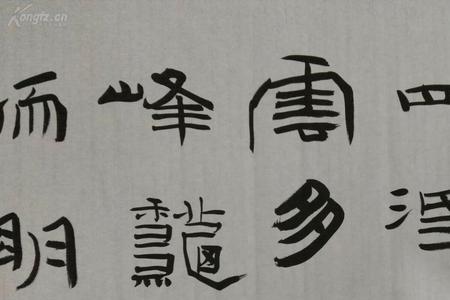 Kongfz.cn
四
雲多
峰龝
明